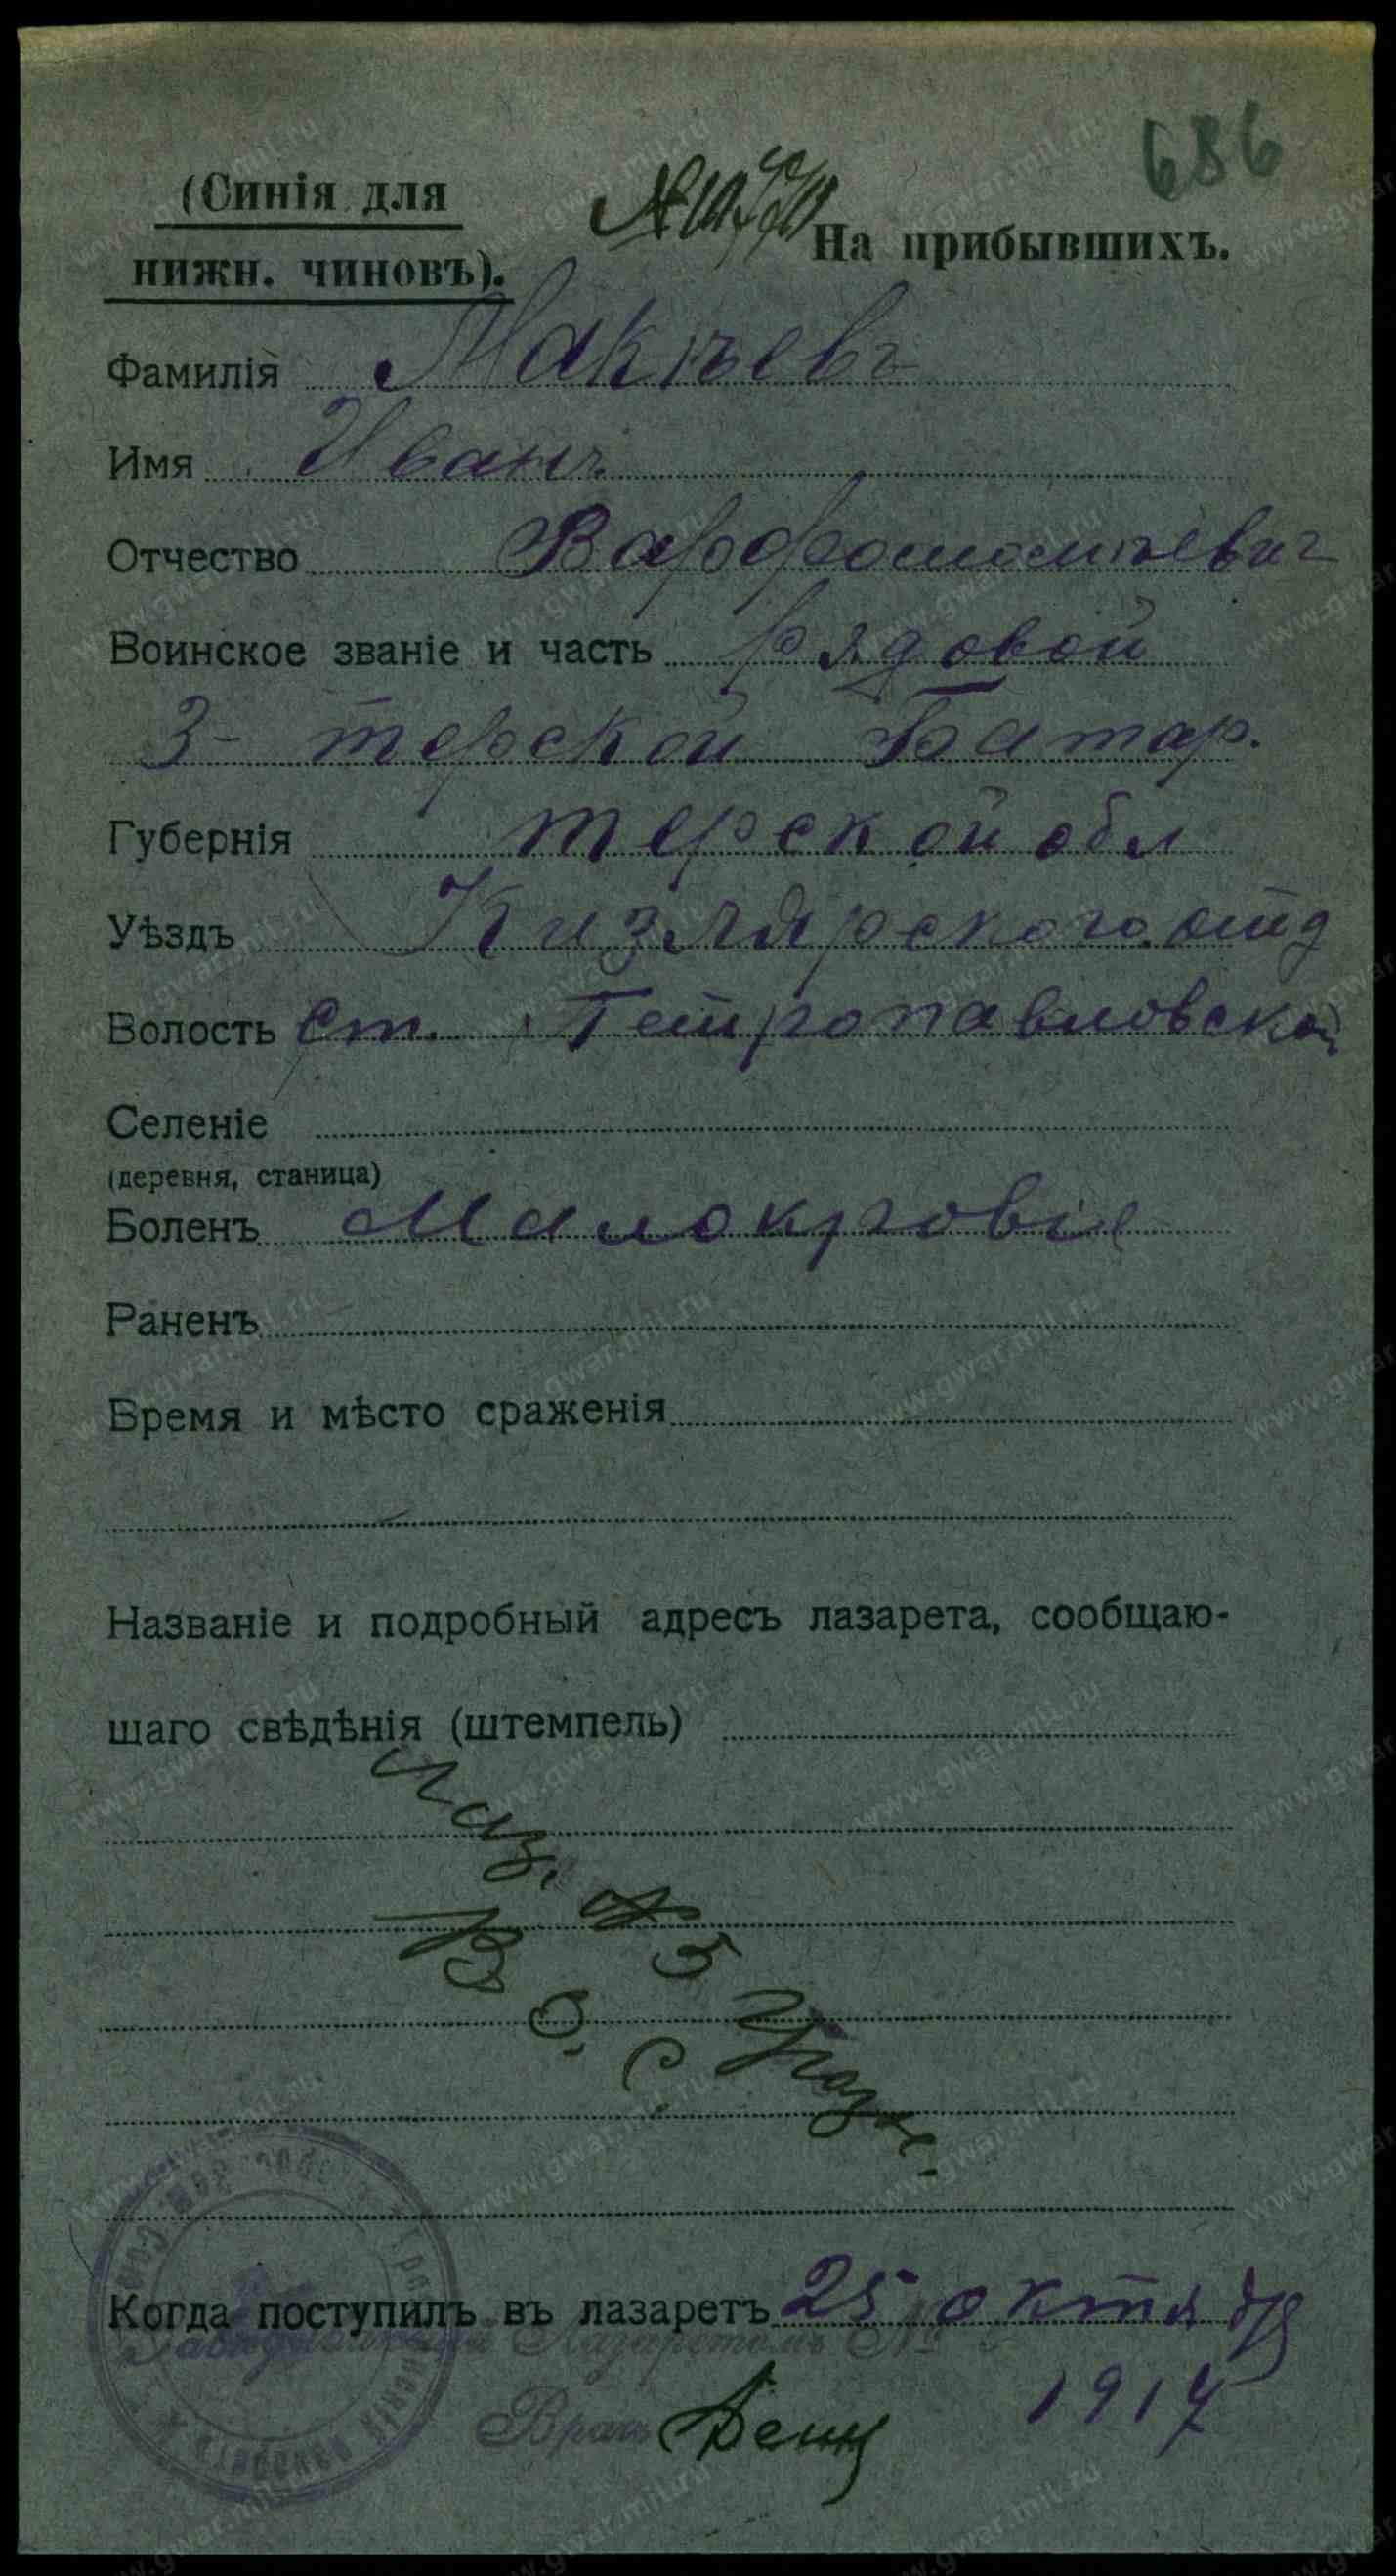 686
(Синія для
нижн. чиновъ).
На прибывшихъ.
Фамилія Макѣевъ
Имя Иванъ
Отчество Варфоломѣевич
Воинское званіе и часть рядовой
3- терской Батар.
Губернія терской обл
Уѣздъ Кизлярского отд
Волость ст. Петропавловской
Селеніе
(деревня, станица)
Боленъ Малокровіе
Раненъ
Время и мѣсто сраженія
Названіе и подробный адресъ лазарета, сообщаю-
щаго свѣдѣнія (штемпель)
Лаз. № 5 Грозн.
В. О. С.
Когда поступилъ въ лазаретъ 25 октября
Завѣдующій Лазаретомъ №
1917
Врачъ